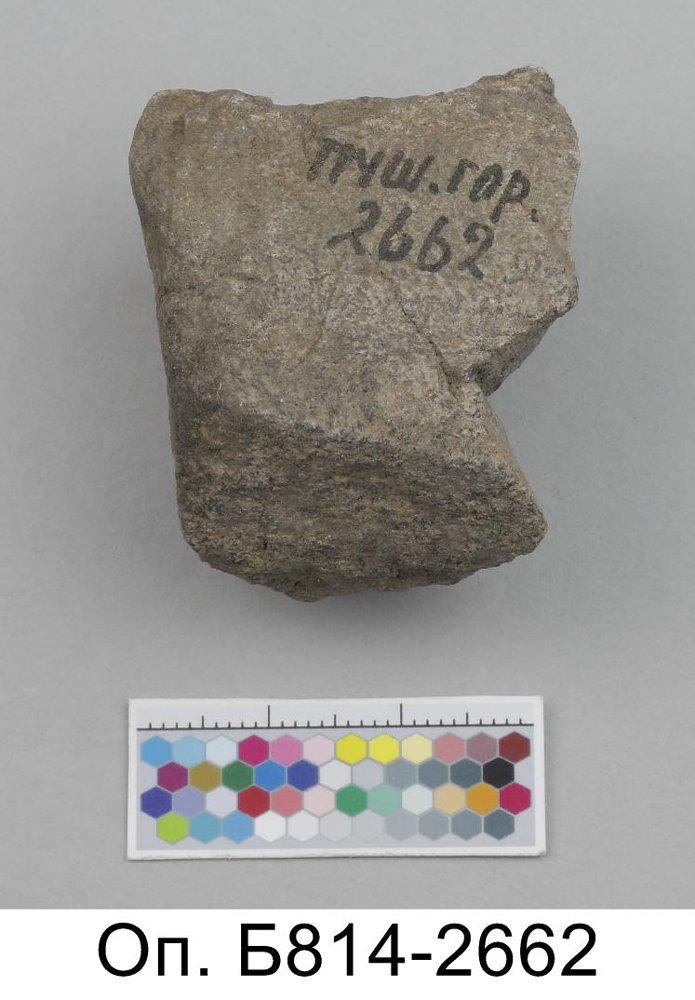 Пуш. гор.
2662
Оп. Б814-2662